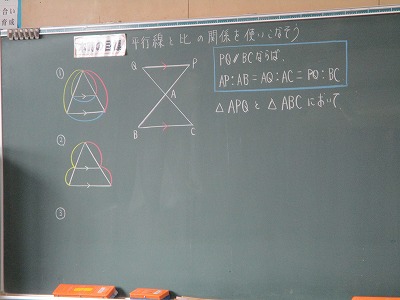 合い
育成
平行線と比の関係を使いこなそう
①
Q P
A
B C
PQ∥BCならば、
AP:AB=AQ:AC=PQ:BC
△APQと△ABCにおいて
②
③